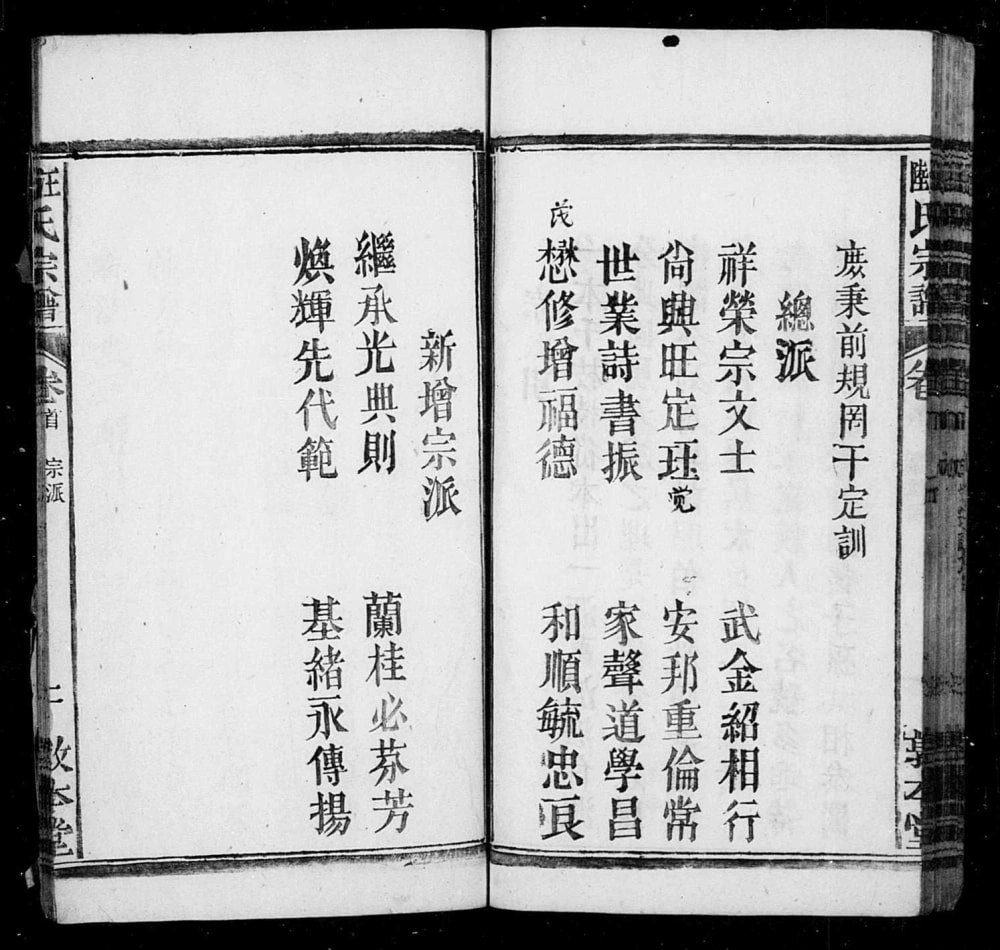 庶秉前規罔干定訓
總派
祥榮宗文士 武金紹相行
尙興旺定珏覚 安邦重倫常
世業詩書振 家聲道學昌
茂
懋修增福德 和順毓忠良
新增宗派
繼承光典則 蘭桂必芬芳
煥輝先代範 基緒永傳揚
汪氏宗譜 卷首 宗派 二 敦本堂
氏宗譜 卷